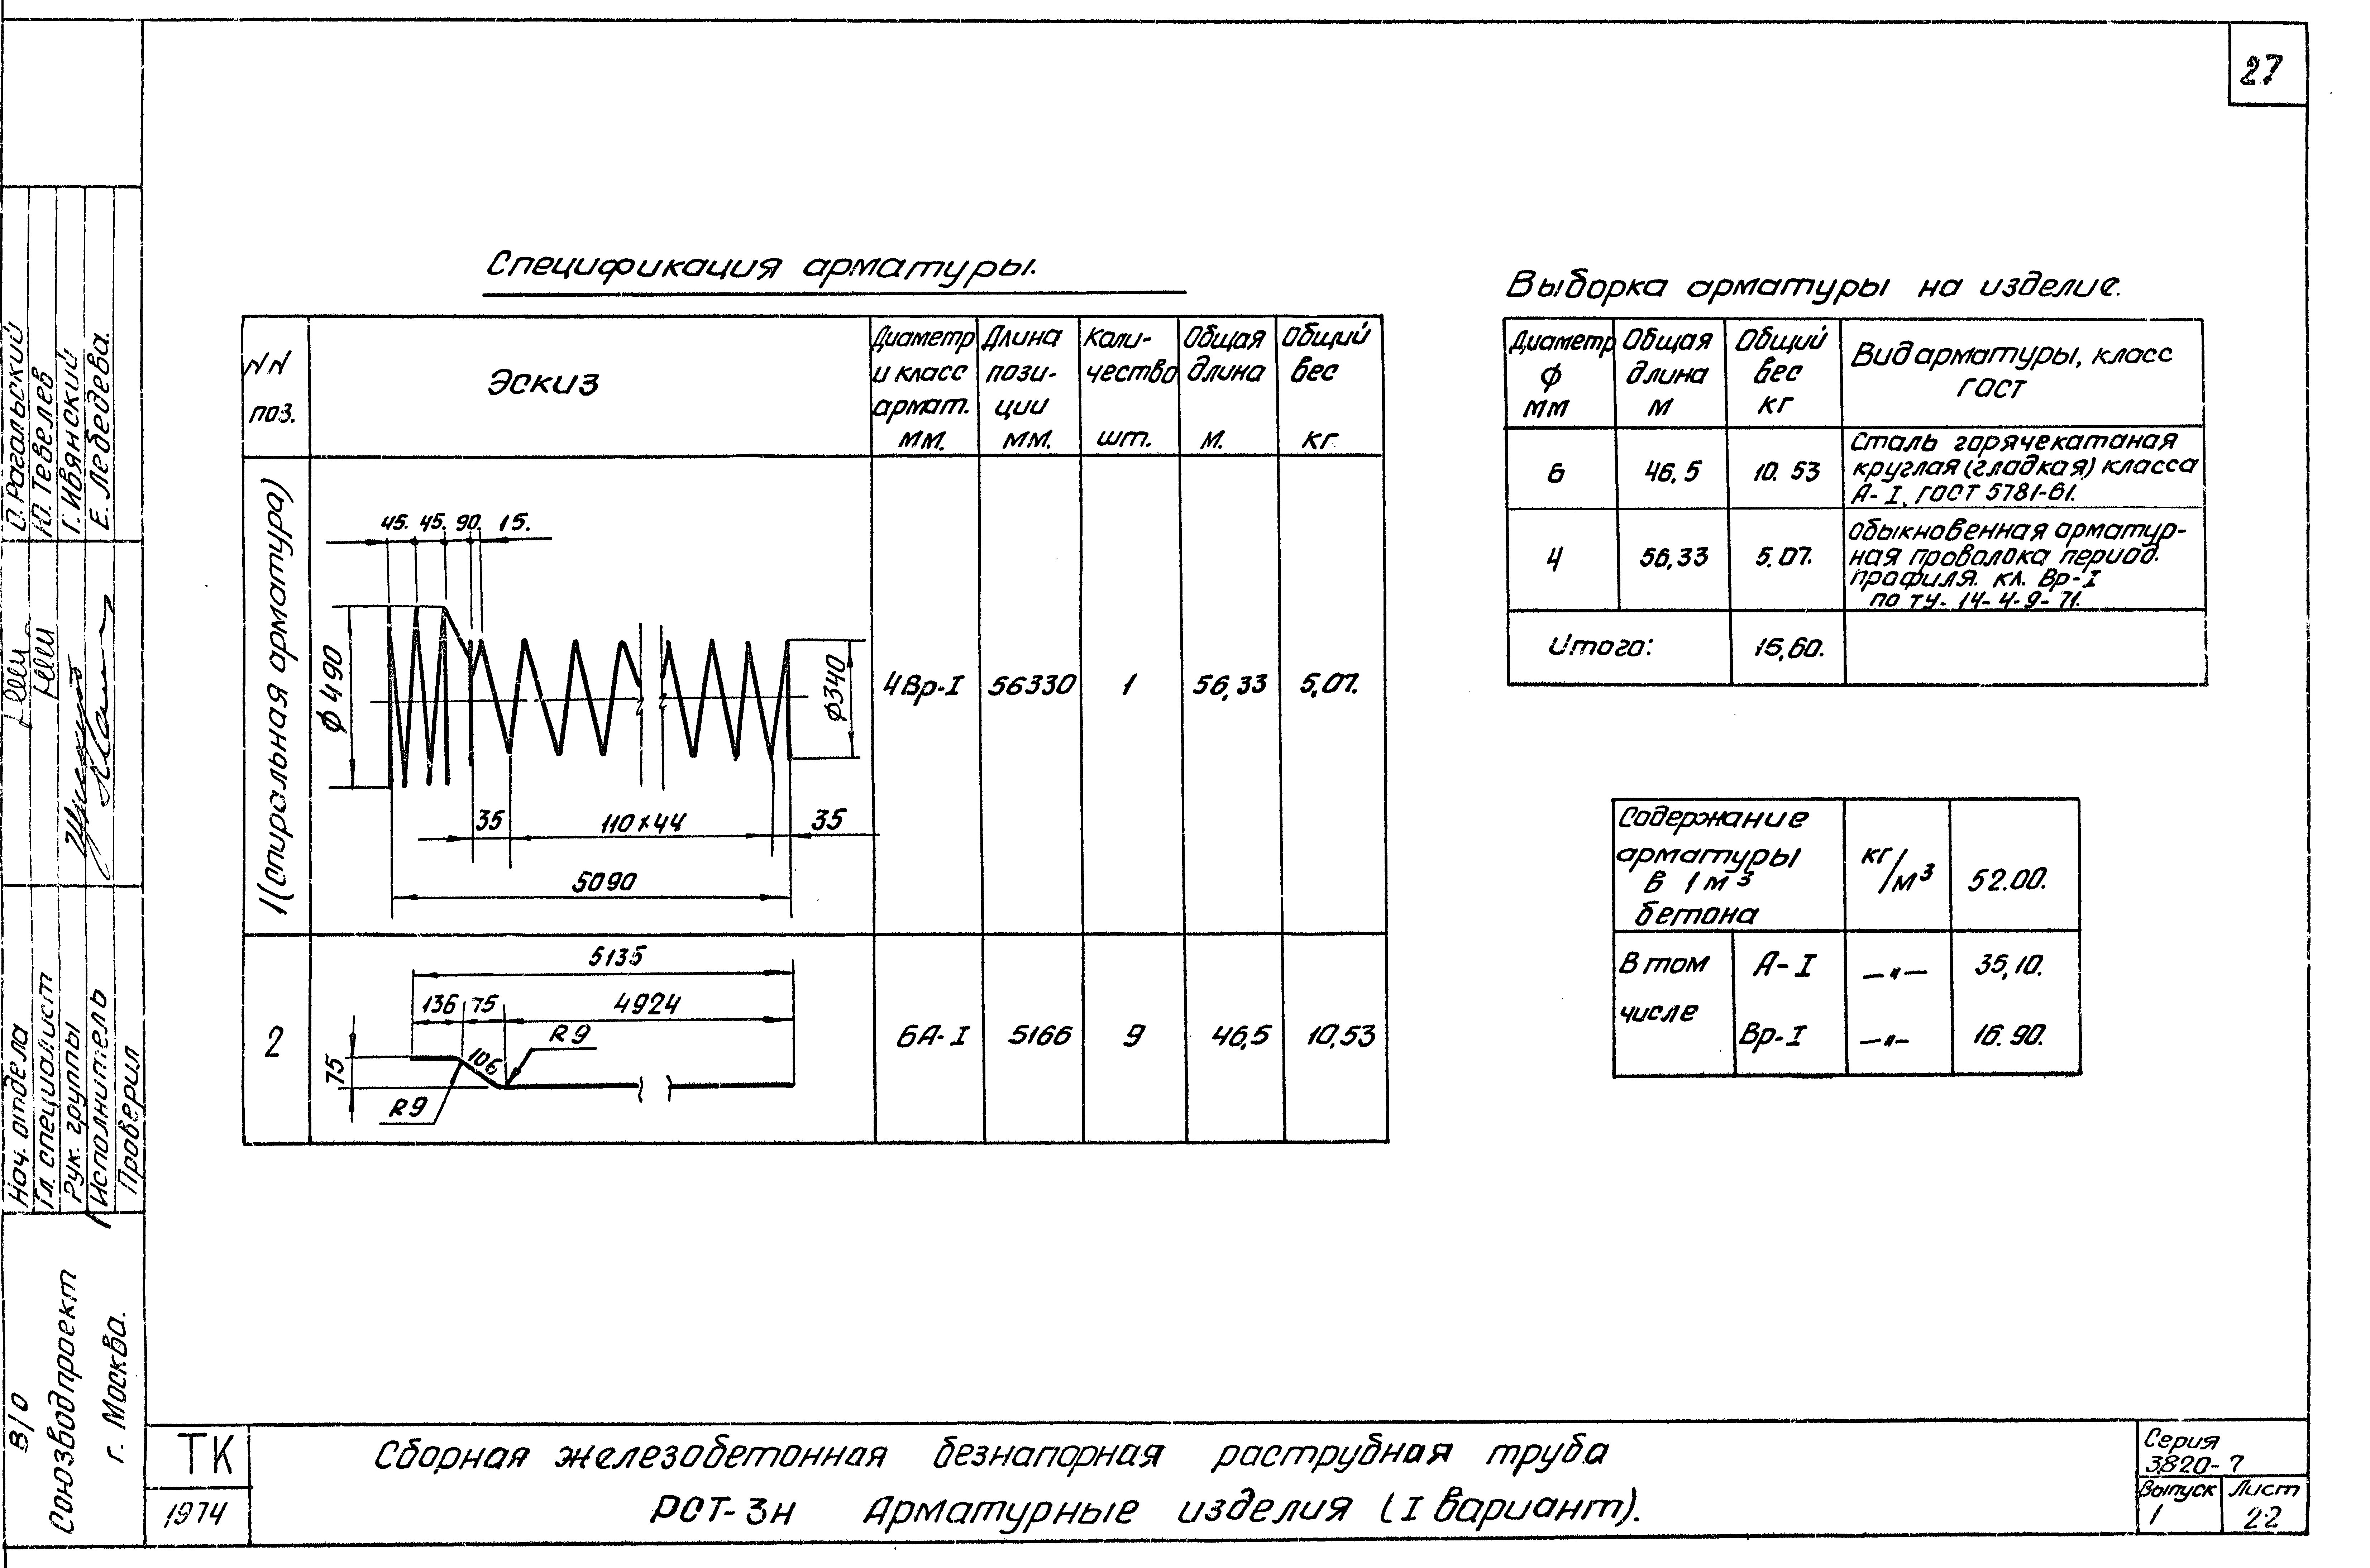 27
Спецификация арматуры.
NN
поз.
Эскиз
Диаметр
и класс
армат.
мм.
Длина
пози-
ции
мм.
Коли-
чество
шт.
Общая
длина
м.
Общий
вес
кг.
1(спиральная арматура)
45. 45. 90. 15.
ф 490
ф340
35
110×44
35
5090
4Вр-I
56330
1
56,33
5,07.
2
5135
136 75 4924
R9
106
75
R9
6А-I
5166
9
46,5
10,53
Выборка арматуры на изделие.
Диаметр
ф
мм
Общая
длина
м
Общий
вес
кг
Вид арматуры, класс
гост
6
46,5
10.53
Сталь горячекатаная
круглая (гладкая) класса
А-I, ГОСТ 5781-61.
4
56,33
5,07.
Обыкновенная арматур-
ная проволока период.
профиля. кл. Вр-I
по ту. 14-4-9-71.
Итого:
15,60.
Содержание
арматуры
в 1м³
бетона
кг/м³
52.00.
В том
числе
А-I
—"—
35,10.
Вр-I
—"—
16.90.
О. Рагальский
Ю. Тевелев
Г. Ивянский
Е. Лебедева.
Нач. отдела
Гл. специалист
Рук. группы
Исполнитель
Проверил
В/О
Союзводпроект
г. Москва.
ТК
1974
Сборная железобетонная безнапорная раструбная труба
РСТ-3н Арматурные изделия (I вариант).
Серия
3.820-7
Выпуск
1
Лист
22